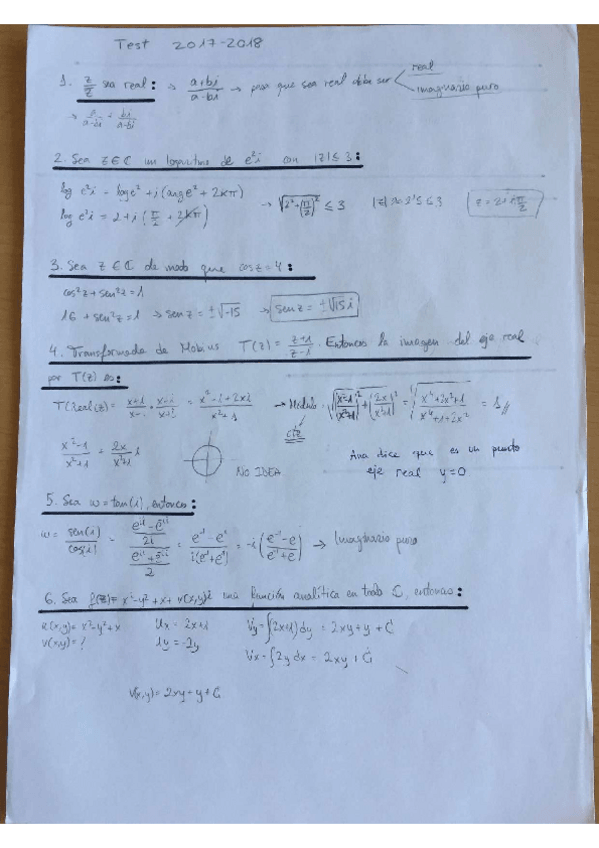 Test 2017-2018
1. z/z̄ sea real: → a+bi/a-bi → para que sea real debe ser < real
imaginario puro
→ a/a-bi + bi/a-bi
2. Sea z∈ℂ un logaritmo de e²i con |z|≤3:
log e²i = log e² + i(arg e² + 2kπ)
log e²i = 2+i(π/2 + 2kπ) → √(2²+(π/2)²) ≤ 3 z=2+iπ/2
3. Sea z∈ℂ de modo que cos z=4:
cos²z+sen²z=1
16 + sen²z=1 → sen z = ±√-15 → sen z = ±√15 i
4. Transformada de Mobius T(z)= z+i/z-i. Entonces la imagen del eje real
por T(z) es:
T(Real(z)= x+i/x-i · x+i/x+i = x²-1+2xi/x²+1 → Modulo: √((x²-1/x²+1)²+(2x/x²+1)²) = √(x⁴+2x²+1/x⁴+1+2x²) = 1
cte
x²-1/x²+1 = 2x/x²+1 i
NO IDEA
Ana dice que es un punto
eje real y=0
5. Sea w=tan(i), entonces:
w= sen(i)/cos(i) = = e⁻¹-e¹/i(e⁻¹+e¹) = -i(e⁻¹-e/e⁻¹+e) → Imaginario puro
6. Sea f(z)= x²-y²+x+v(x,y)i una función analítica en todo ℂ, entonces:
u(x,y)= x²-y²+x Ux = 2x+1 Vy=∫(2x+1)dy = 2xy+y+C
v(x,y)=? Uy = -2y Vx=∫2y dx = 2xy+C
v(x,y)= 2xy+y+C